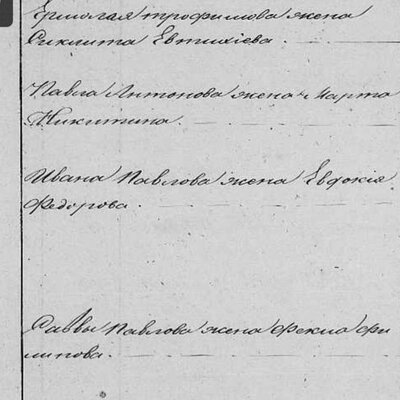 Ермолая трофимова жена
Сиклита Евтихіева.
Павла Антонова жена Марта
Никитина.
Ивана Павлова жена Евдокія
Федорова.
Саввы Павлова жена Фекла Фи
липова.